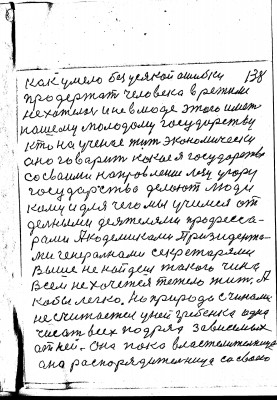 как умело без усякой ошибки 138
продержат человека в режим
не хотелось и не в моде этого иметь
нашему молодому государству
кто научение жит экономически
оно говарит какое государство
со своими направление
государства делают люди
кому и для чего мы учимся от
делными деятелями професса-
рами Академиками Призидента-
ми генералнами секретарями
Выше не найдеш такого чина
Всем не хочется тежело жит. А
кабы легко. Но природа с чинами
не считается у ней гребенка одна
чисат всех подряд зависемых
от ней. Она пока властителница
она распорядителница со своо